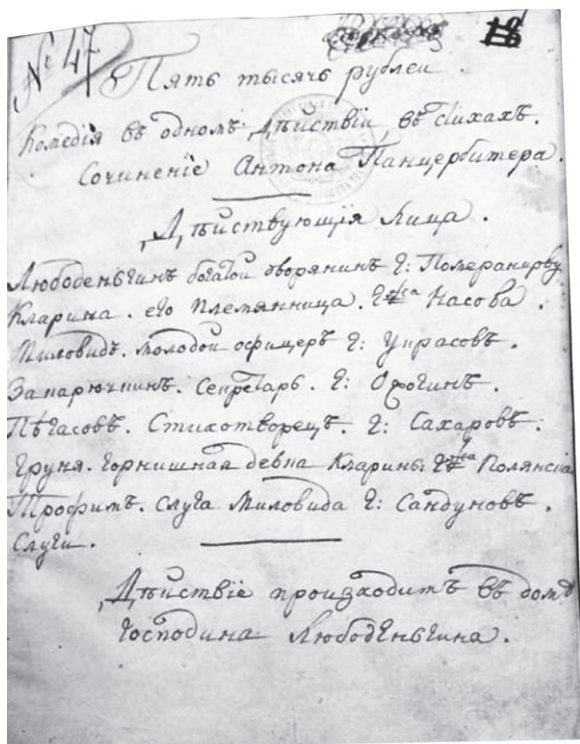 № 47
Пять тысячь рублеи.
Комедія въ одномъ дѣиствіи, въ стихахъ.
Сочиненіе Антона Панцербитера.
Дѣиствующія лица.
Любоденьгинъ богатои дворянинъ Г: Померанцову
Кларина. его племянница. Г-жа Насова.
Миловидъ. молодои офицеръ Г: Украсовъ.
Закарючкинъ. Секретарь. Г: Ожогинъ.
Пѣгасовъ. Стихотворецъ. Г: Сахаровъ.
Груня. горнишная девка Кларины Г-жа Полянскіа
Трофимъ. слуга Миловида Г: Сандуновъ.
Слуги.
Дѣиствіе произходитъ въ домѣ
господина Любоденьгина.